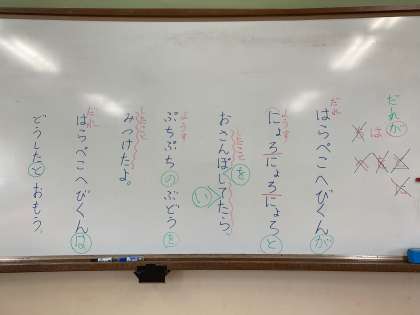 だれが
は
だれ
はらぺこへびくんが
ようす
にょろにょろにょろと
したこと
おさんぽをしていたら、
ようす
ぷちぷちのぶどうを
したこと
みつけたよ。
だれ
はらぺこへびくんは
どうしたとおもう。